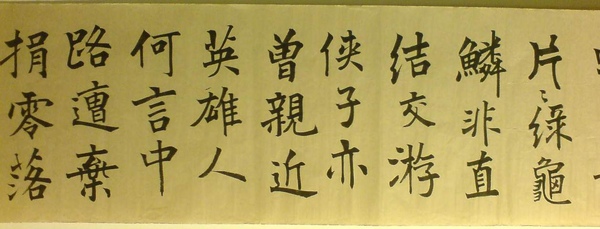 片〻緑龜
鱗非直
結交游
侠子亦
曾親近
英雄人
何言中
路遭棄
捐零落